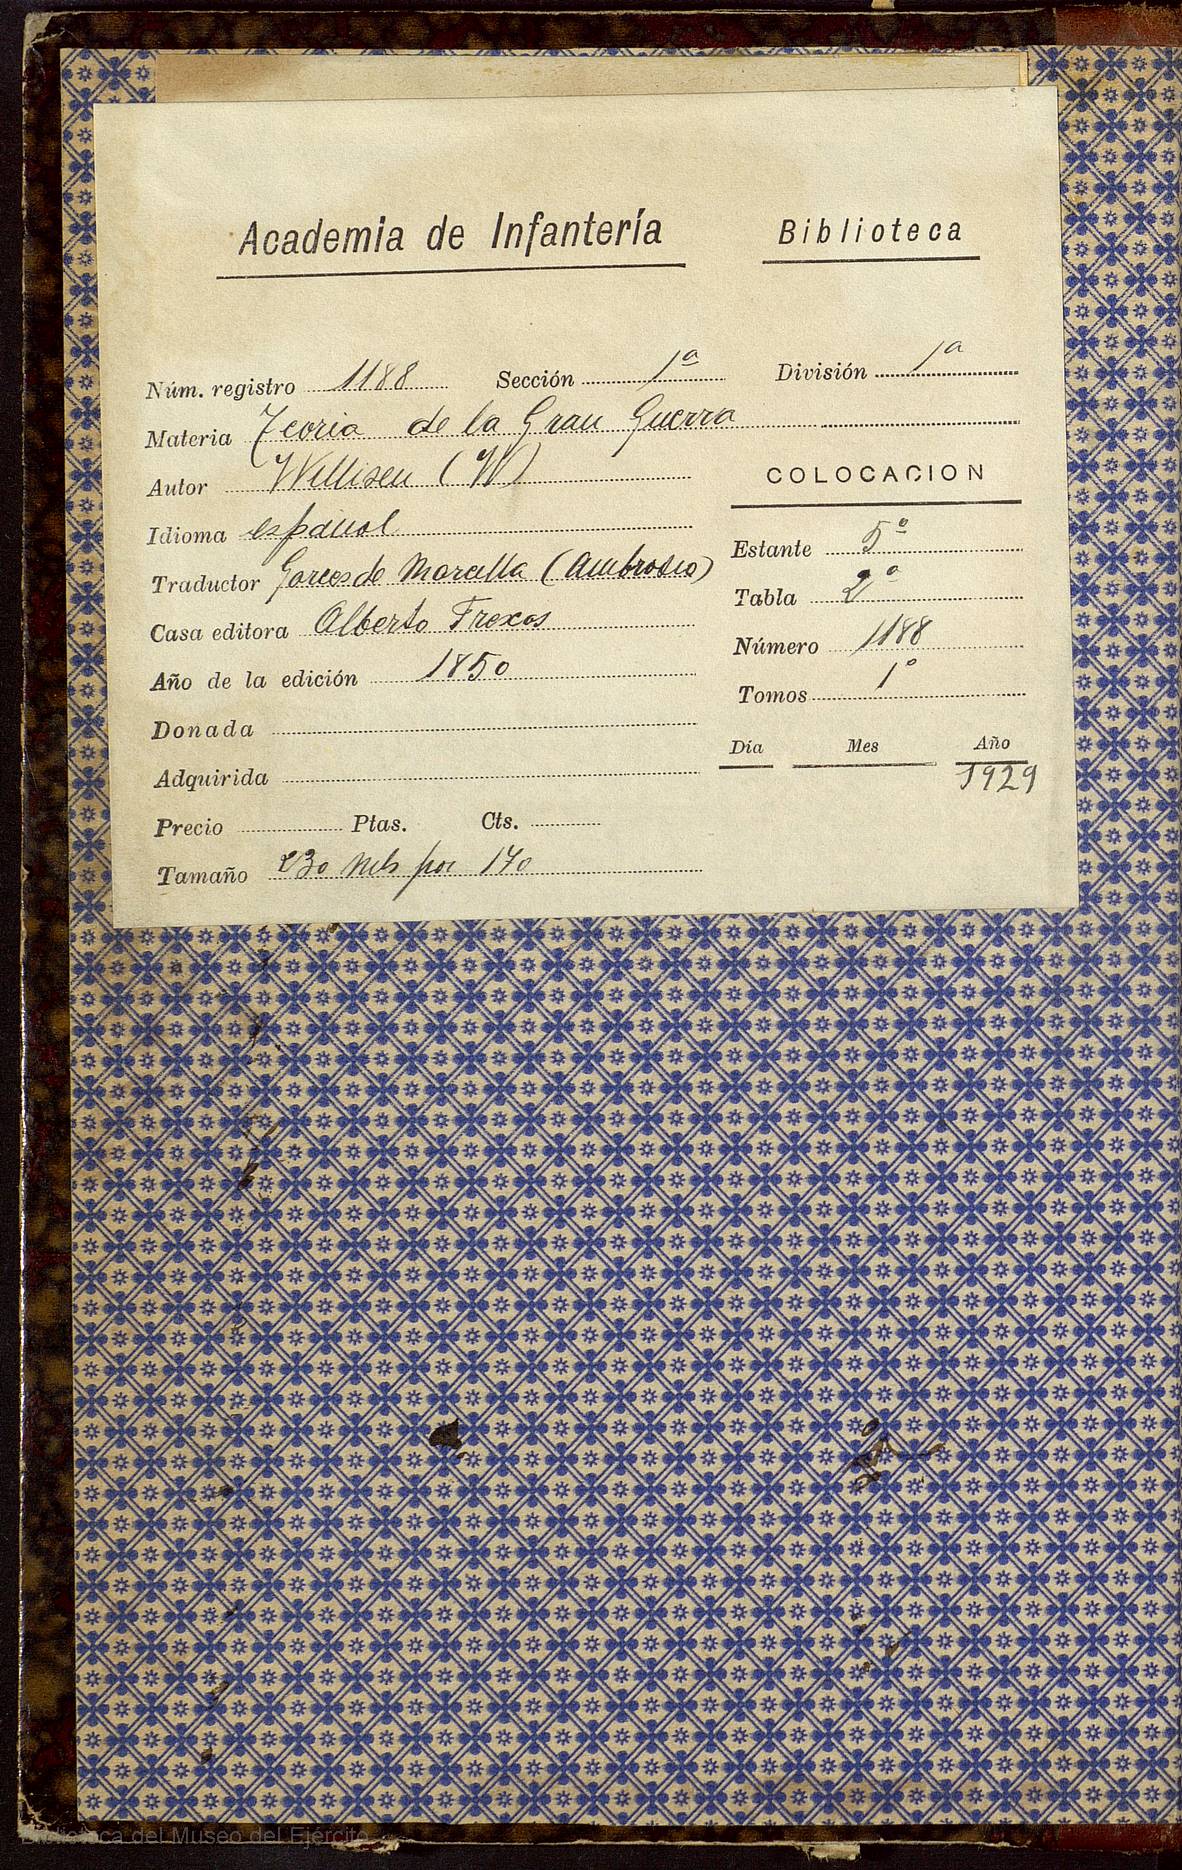 Academia de Infantería
Biblioteca
Núm. registro 1188 Sección 1ª División 1ª
Materia Teoria de la Gran Guerra
Autor Willisen (W)
Idioma español
Traductor Garces de Marcilla (Ambrosio)
Casa editora Alberto Frexas
Año de la edición 1850
Donada
Adquirida
Precio Ptas. Cts.
Tamaño 230 mls por 170
COLOCACION
Estante 5º
Tabla 2º
Número 1188
Tomos 1º
Día Mes Año
1929
Biblioteca del Museo del Ejército